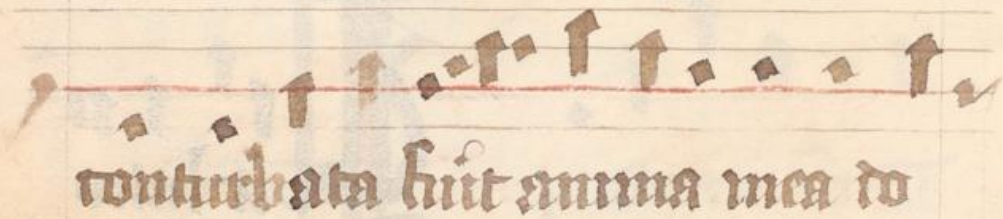 conturbata fuit anima mea do